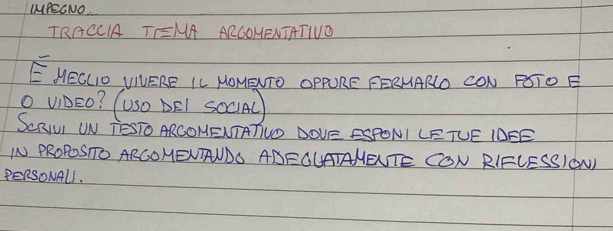 IMPEGNO.
TRACCIA TEMA ARGOMENTATIVO
È MEGLIO VIVERE IL MOMENTO OPPURE FERMARLO CON FOTO E
O VIDEO? (USO DEI SOCIAL)
SCRIVI UN TESTO ARGOMENTATIVO DOVE ESPONI LE TUE IDEE
IN PROPOSITO ARGOMENTANDO ADEGUATAMENTE CON RIFLESSIONI
PERSONALI.